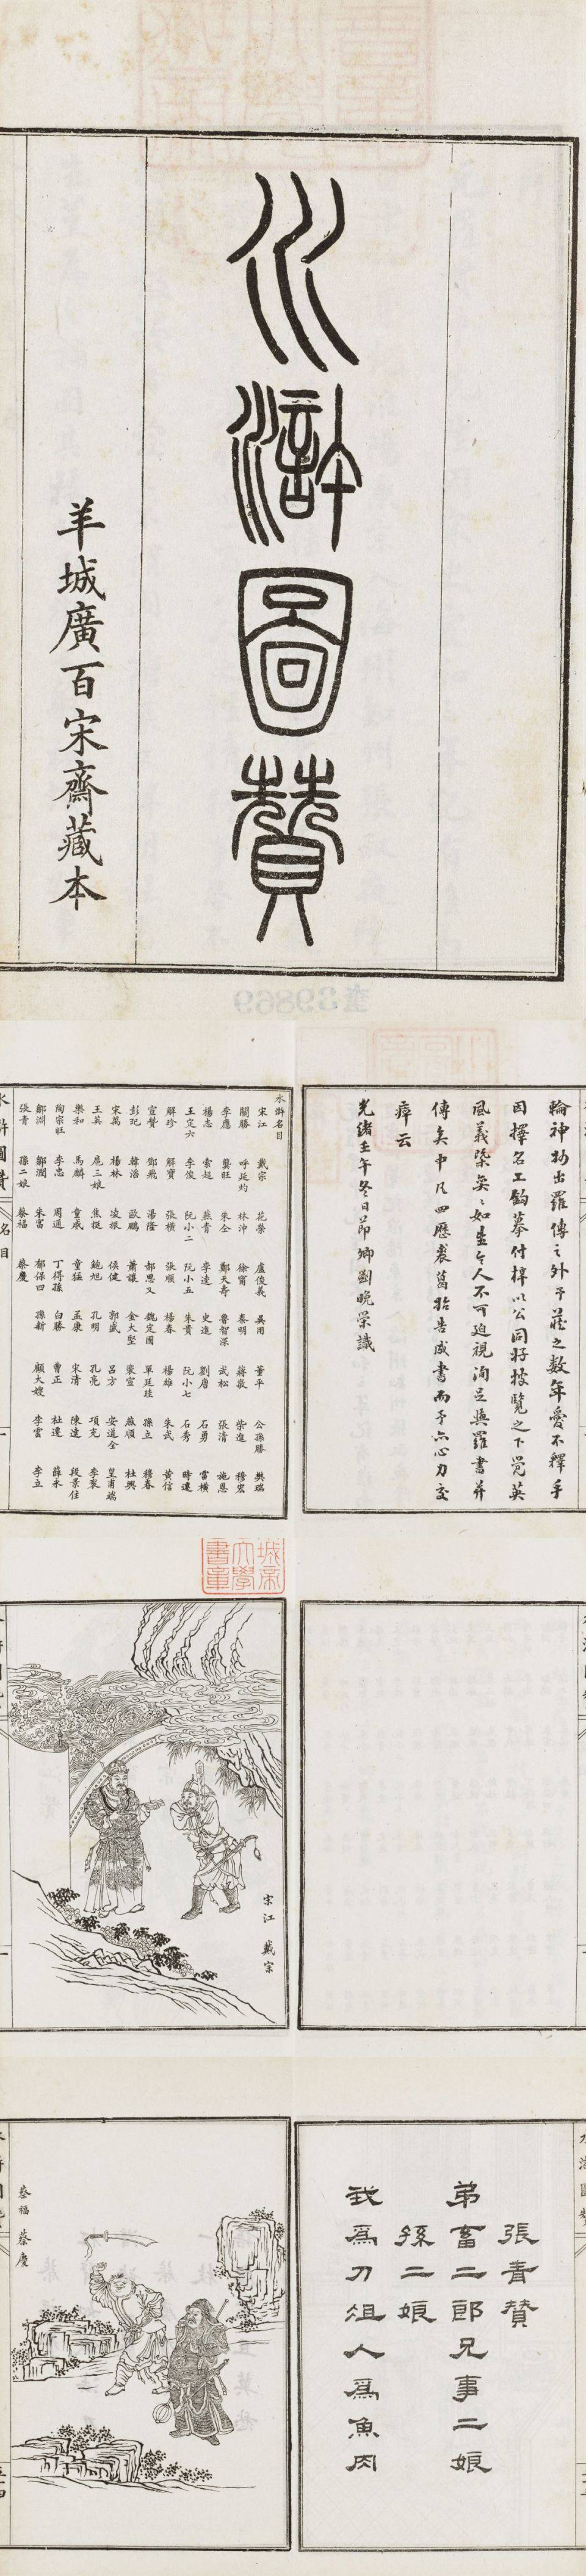 水滸圖贊
羊城廣百宋齋藏本
輪神抝出羅傳之外予藏之數年愛不釋手
因擇名工鈎摹付梓以公同好披覽之下覺英
風義槩奕々如生令人不可迫視洵足與羅書并
傳矣中凡四歷裘葛始告成書而予亦心力交
瘁云
光緒壬午冬日節卿劉晚榮識
水滸名目
宋江 戴宗 花榮 盧俊義 吳用 董平 公孫勝 樊瑞
關勝 呼延灼 林沖 徐甯 秦明 蔣敬 柴進 穆宏
李應 龔旺 朱仝 鄭天壽 魯智深 武松 張清 施恩
楊志 索超 燕青 李逵 史進 劉唐 石勇 雷橫
王定六 李俊 阮小二 阮小五 朱貴 阮小七 石秀 時遷
解珍 解寶 張橫 張順 楊春 楊雄 朱武 黃信
宣贊 鄧飛 湯隆 郝思文 魏定國 單廷珪 孫立 穆春
彭玘 韓滔 歐鵬 蕭讓 金大堅 裴宣 燕順 杜興
宋萬 楊林 凌振 侯健 郭盛 呂方 安道全 皇甫端
王英 扈三娘 焦挺 鮑旭 孔明 孔亮 項充 李袞
樂和 馬麟 童威 童猛 孟康 宋清 陳達 段景住
陶宗旺 李忠 周通 丁得孫 白勝 曹正 杜遷 薛永
鄒淵 鄒潤 朱富 郁保四 孫新 顧大嫂 李雲 李立
張青 孫二娘 蔡福 蔡慶
水滸圖贊
名目
宋江 戴宗
張青贊
弟畜二郎兄事二娘
孫二娘
我為刀俎人為魚肉
蔡福 蔡慶